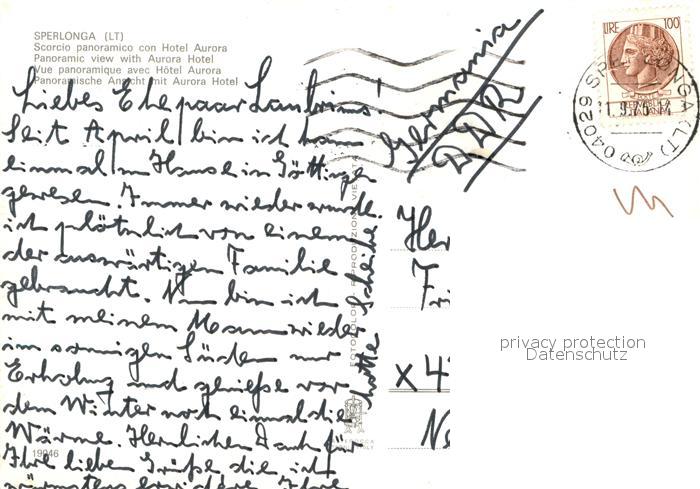 SPERLONGA (LT)
Scorcio panoramico con Hotel Aurora
Panoramic view with Aurora Hotel
Vue panoramique avec Hôtel Aurora
Panoramische Ansicht mit Aurora Hotel
Liebes Ehepaar
Seit April bin ich kaum
einmal im Hause in Göttingen
gewesen. Immer wieder wurde
ich plötzlich von einem
der auswärtigen Familie
gebraucht. Nun bin ich
mit meinem Mann wieder
im sonnigen Süden zur
Erholung und genieße vor
dem Winter noch einmal die
Wärme. Herzlichen Dank für
Ihre lieben Grüße die ich
19046
RIPRODUZIONE VIETATA
Germania
DDR
LIRE 100
04029 SPERLONGA (LT)
11.9.75.14
Her
Fr
x 4
N
privacy protection
Datenschutz